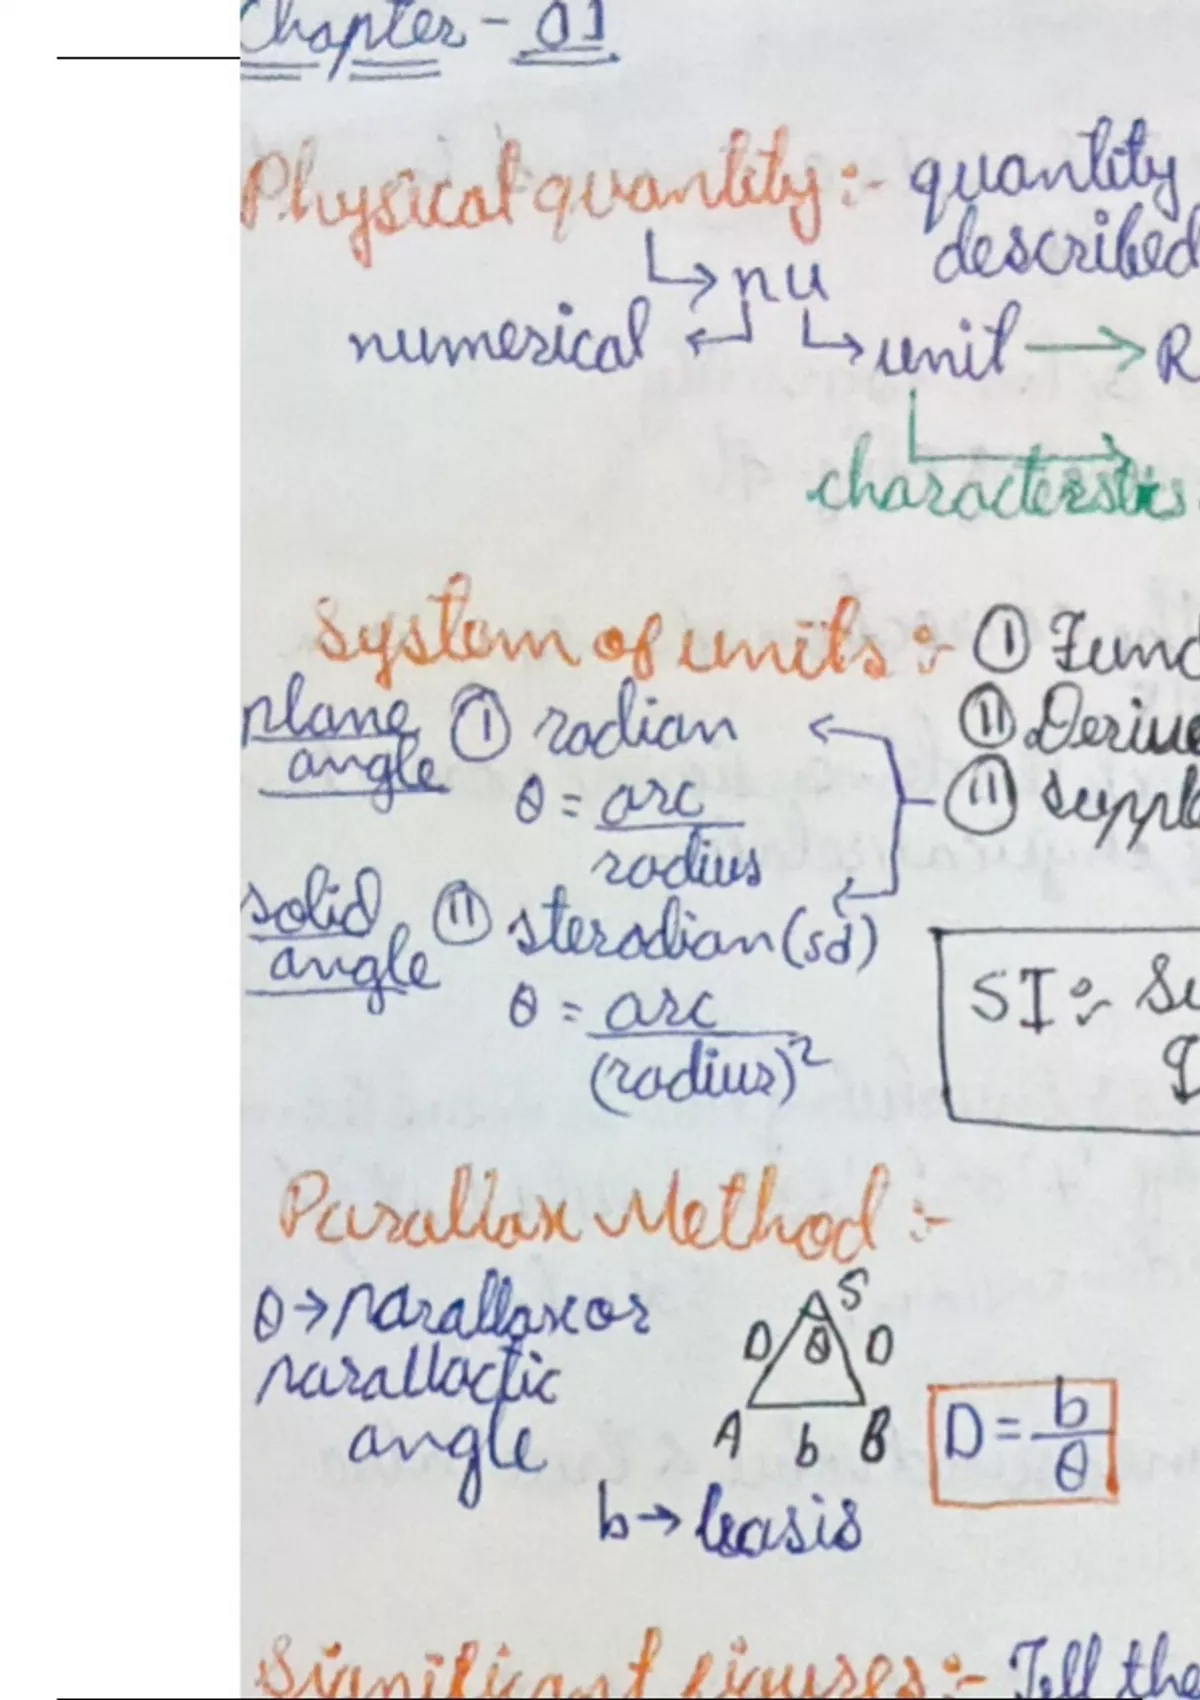 Chapter - 01
Physical quantity :- quantity
described
→ nu
numerical ← → unit → R
characterstics
System of units :- (I) Func
plane angle (I) radian
(II) Derive
θ = arc/radius
(II) supple
solid angle (II) steradian (sd)
θ = arc/(radius)²
SI :- Su
Parallax Method :-
θ → parallax or
parallactic
angle
S
D θ D
A b B
D = b/θ
b → basis
Significant figures :- Tell the